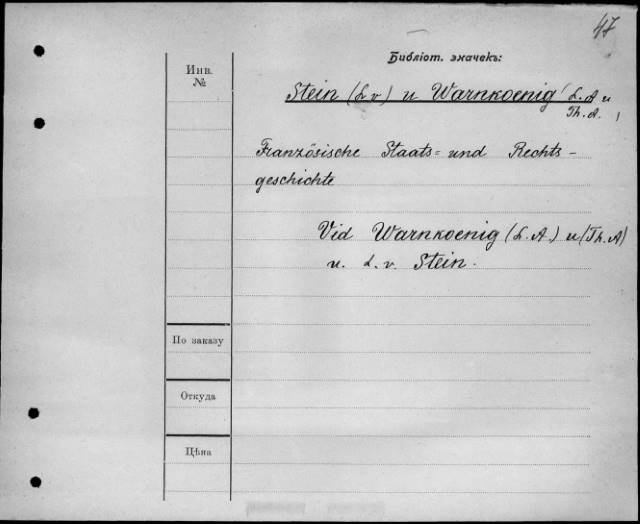 47
Библіот. значекъ:
Инв.
№
Stein (L v) u Warnkoenig L. A u
Th. A.
Französische Staats= und Rechts-
geschichte
Vid Warnkoenig (L. A.) u (Th. A)
u. L. v. Stein.
По заказу
Откуда
Цѣна